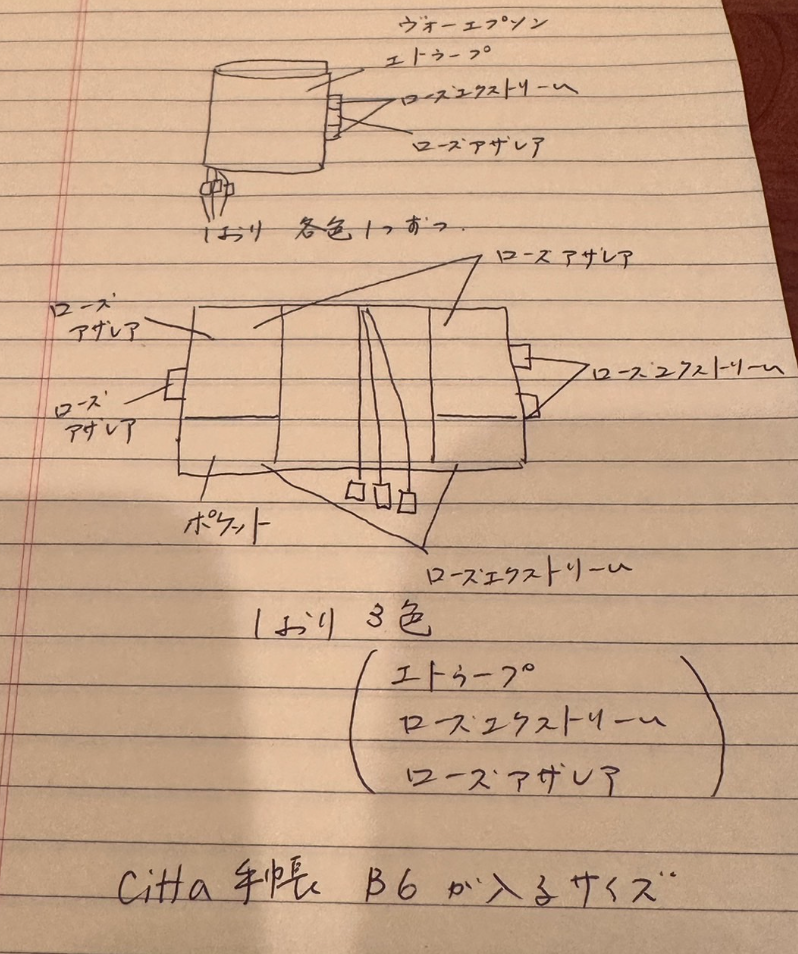 ヴォーエプソン
エトゥープ
ローズエクストリーム
ローズアザレア
しおり 各色1つずつ.
ローズアザレア
ローズ
アザレア
ローズエクストリーム
ローズ
アザレア
ポケット
ローズエクストリーム
しおり 3色
エトゥープ
ローズエクストリーム
ローズアザレア
Citta 手帳 B6 が入るサイズ